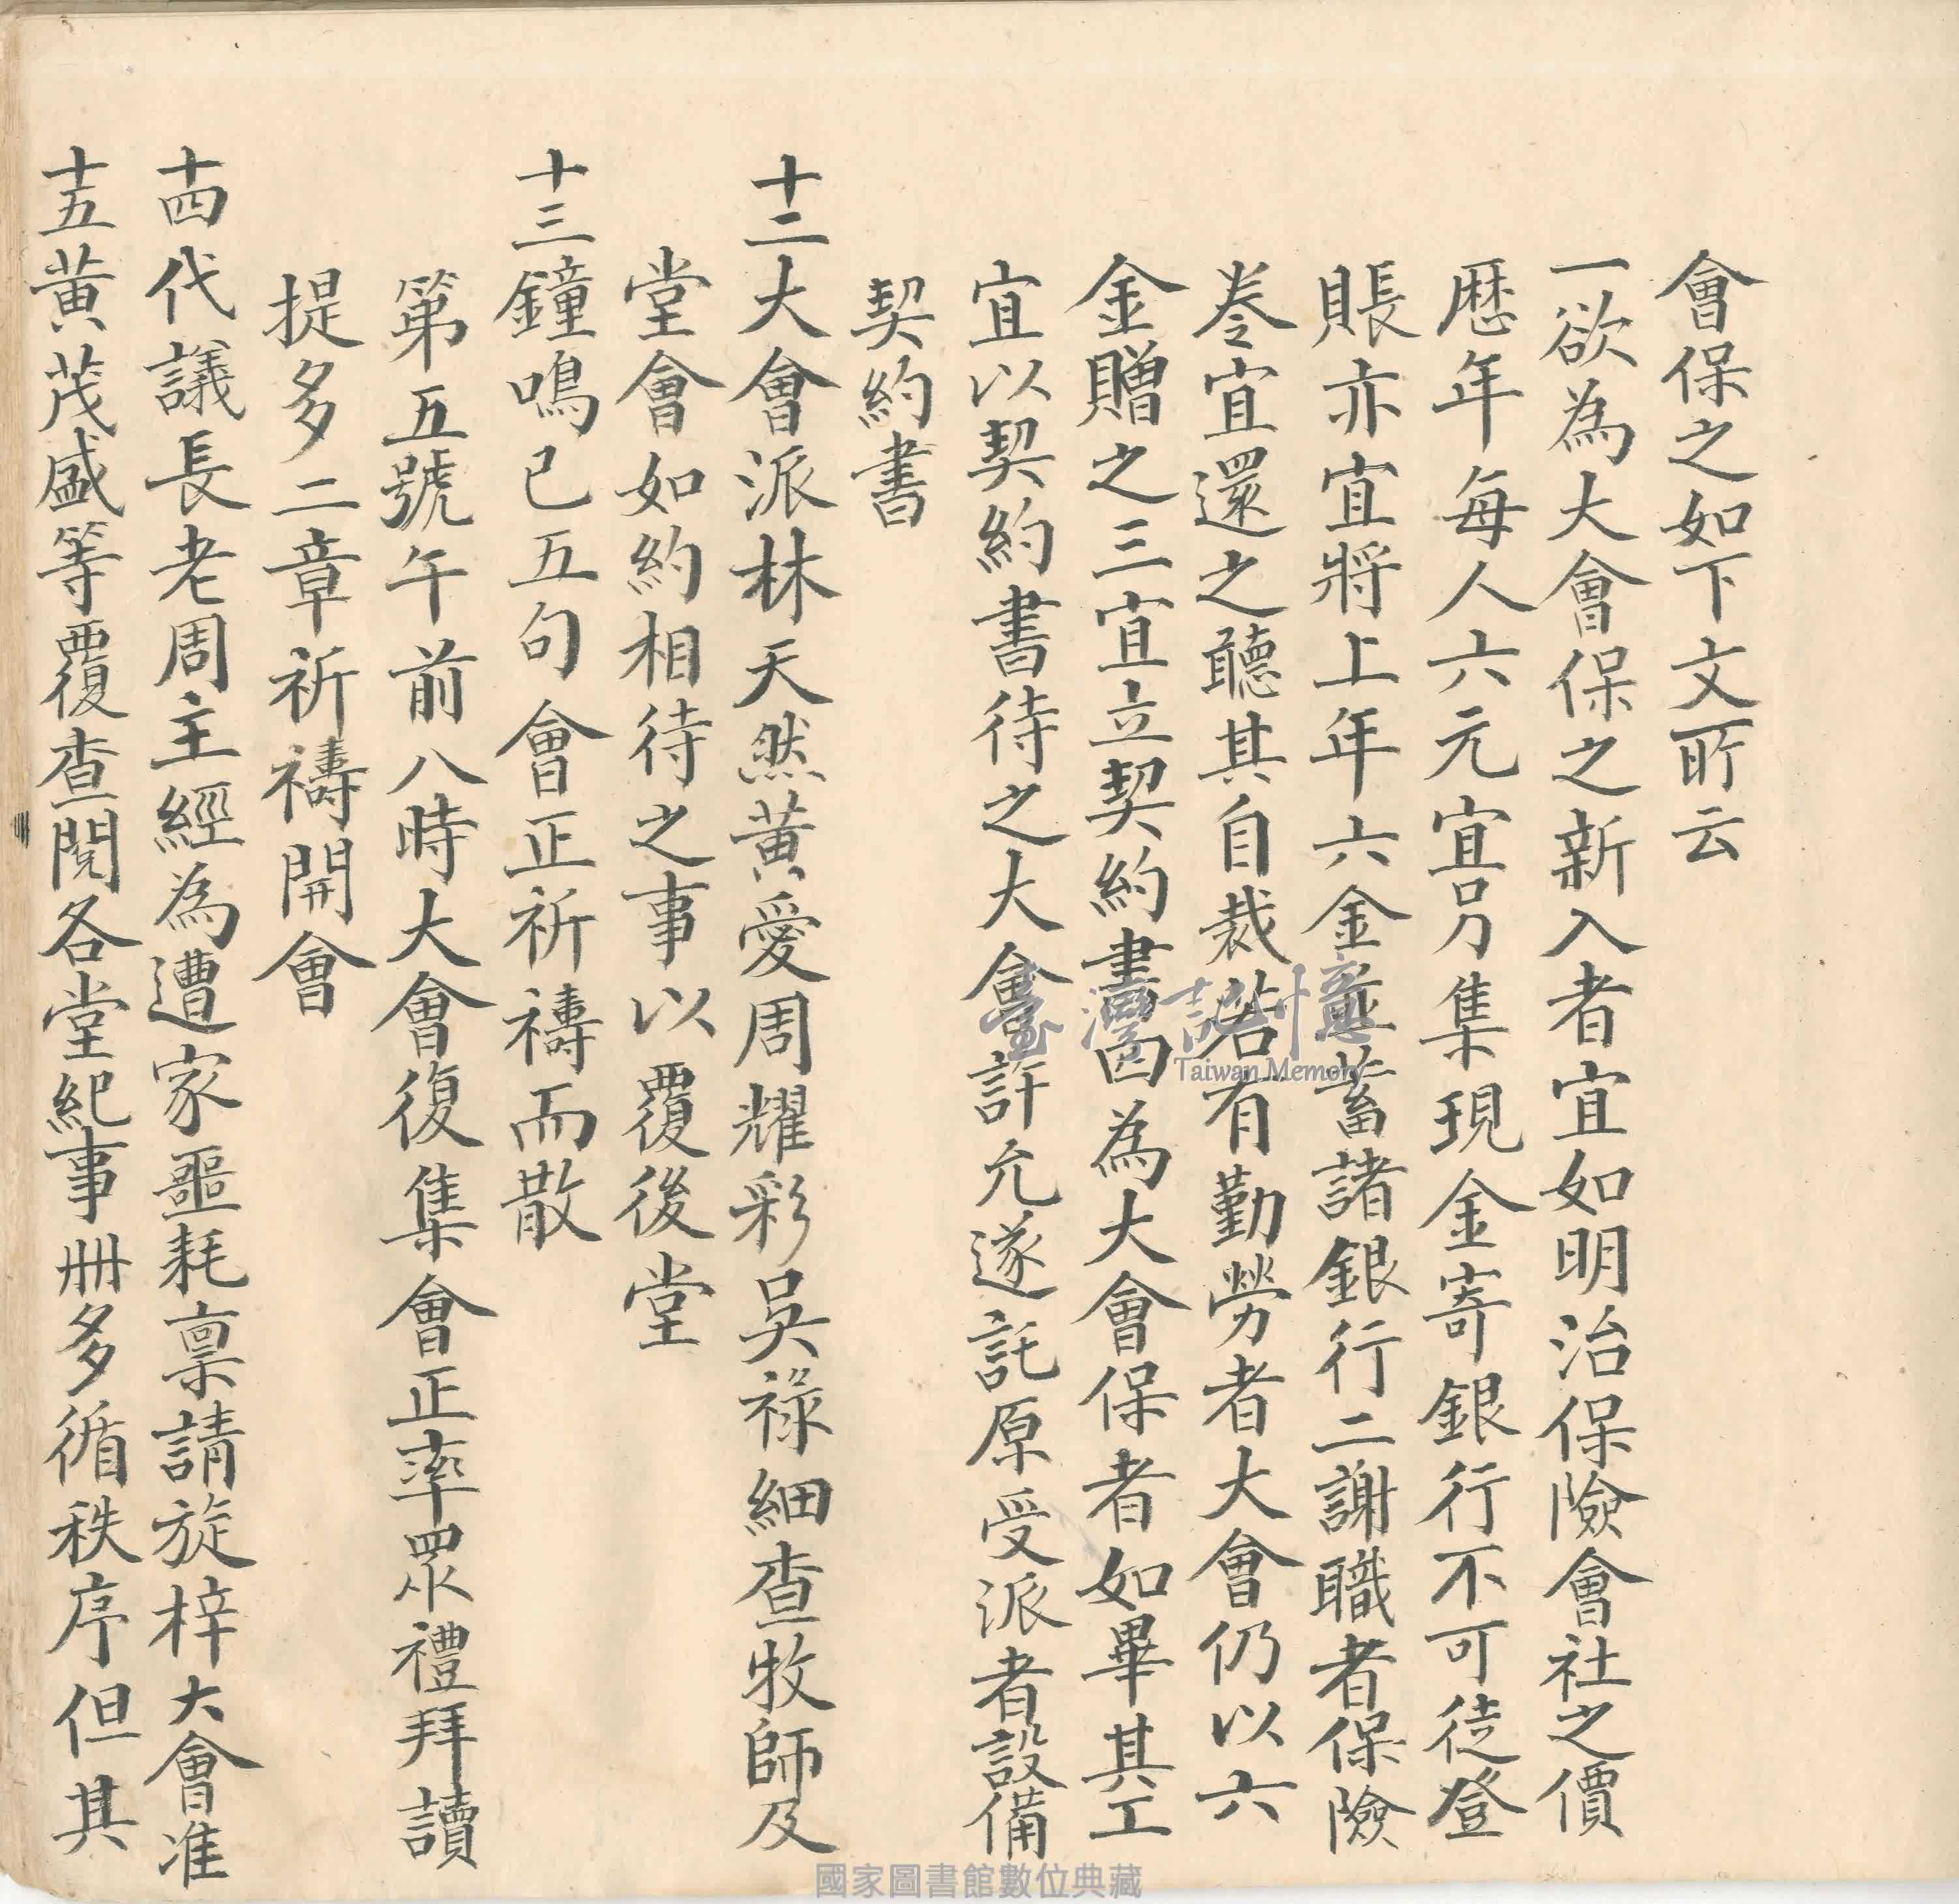 會保之如下文所云
一欲為大會保之新入者宜如明治保險會社之價
歷年每人六元宜另集現金寄銀行不可徒登
賬亦宜將上年六金並蓄諸銀行二謝職者保險
券宜還之聽其自裁若有勤勞者大會仍以六
金贈之三宜立契約書因為大會保者如畢其工
宜以契約書待之大會許允遂託原受派者設備
契約書
十二大會派林天然黃愛周耀彩吳祿細查牧師及
堂會如約相待之事以覆後堂
十三鐘鳴已五句會正祈禱而散
第五號午前八時大會復集會正率眾禮拜讀
提多二章祈禱開會
十四代議長老周主經為遭家噩耗稟請旋梓大會准
十五黃茂盛等覆查閱各堂紀事冊多循秩序但其
臺灣記憶
Taiwan Memory
國家圖書館數位典藏